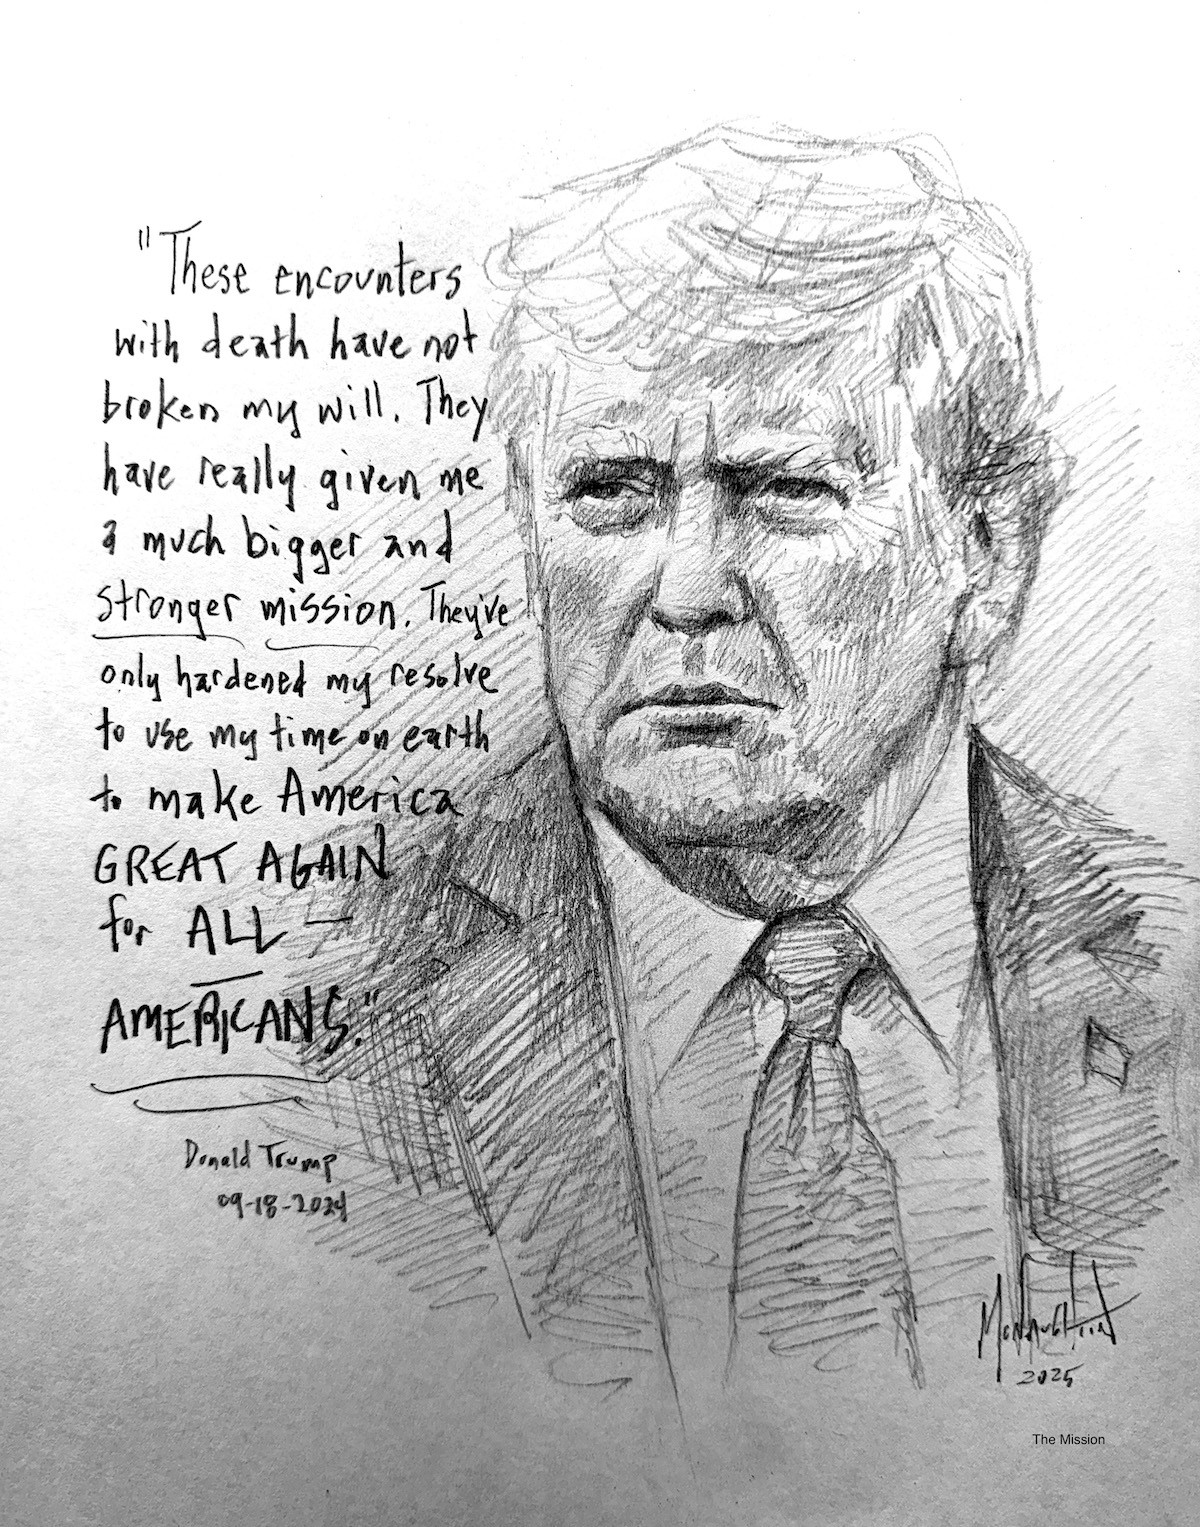 "These encounters
with death have not
broken my will. They
have really given me
a much bigger and
stronger mission. They've
only hardened my resolve
to use my time on earth
to make America
GREAT AGAIN
for ALL
AMERICANS."
Donald Trump
09-18-2024
McNaughton
2025
The Mission